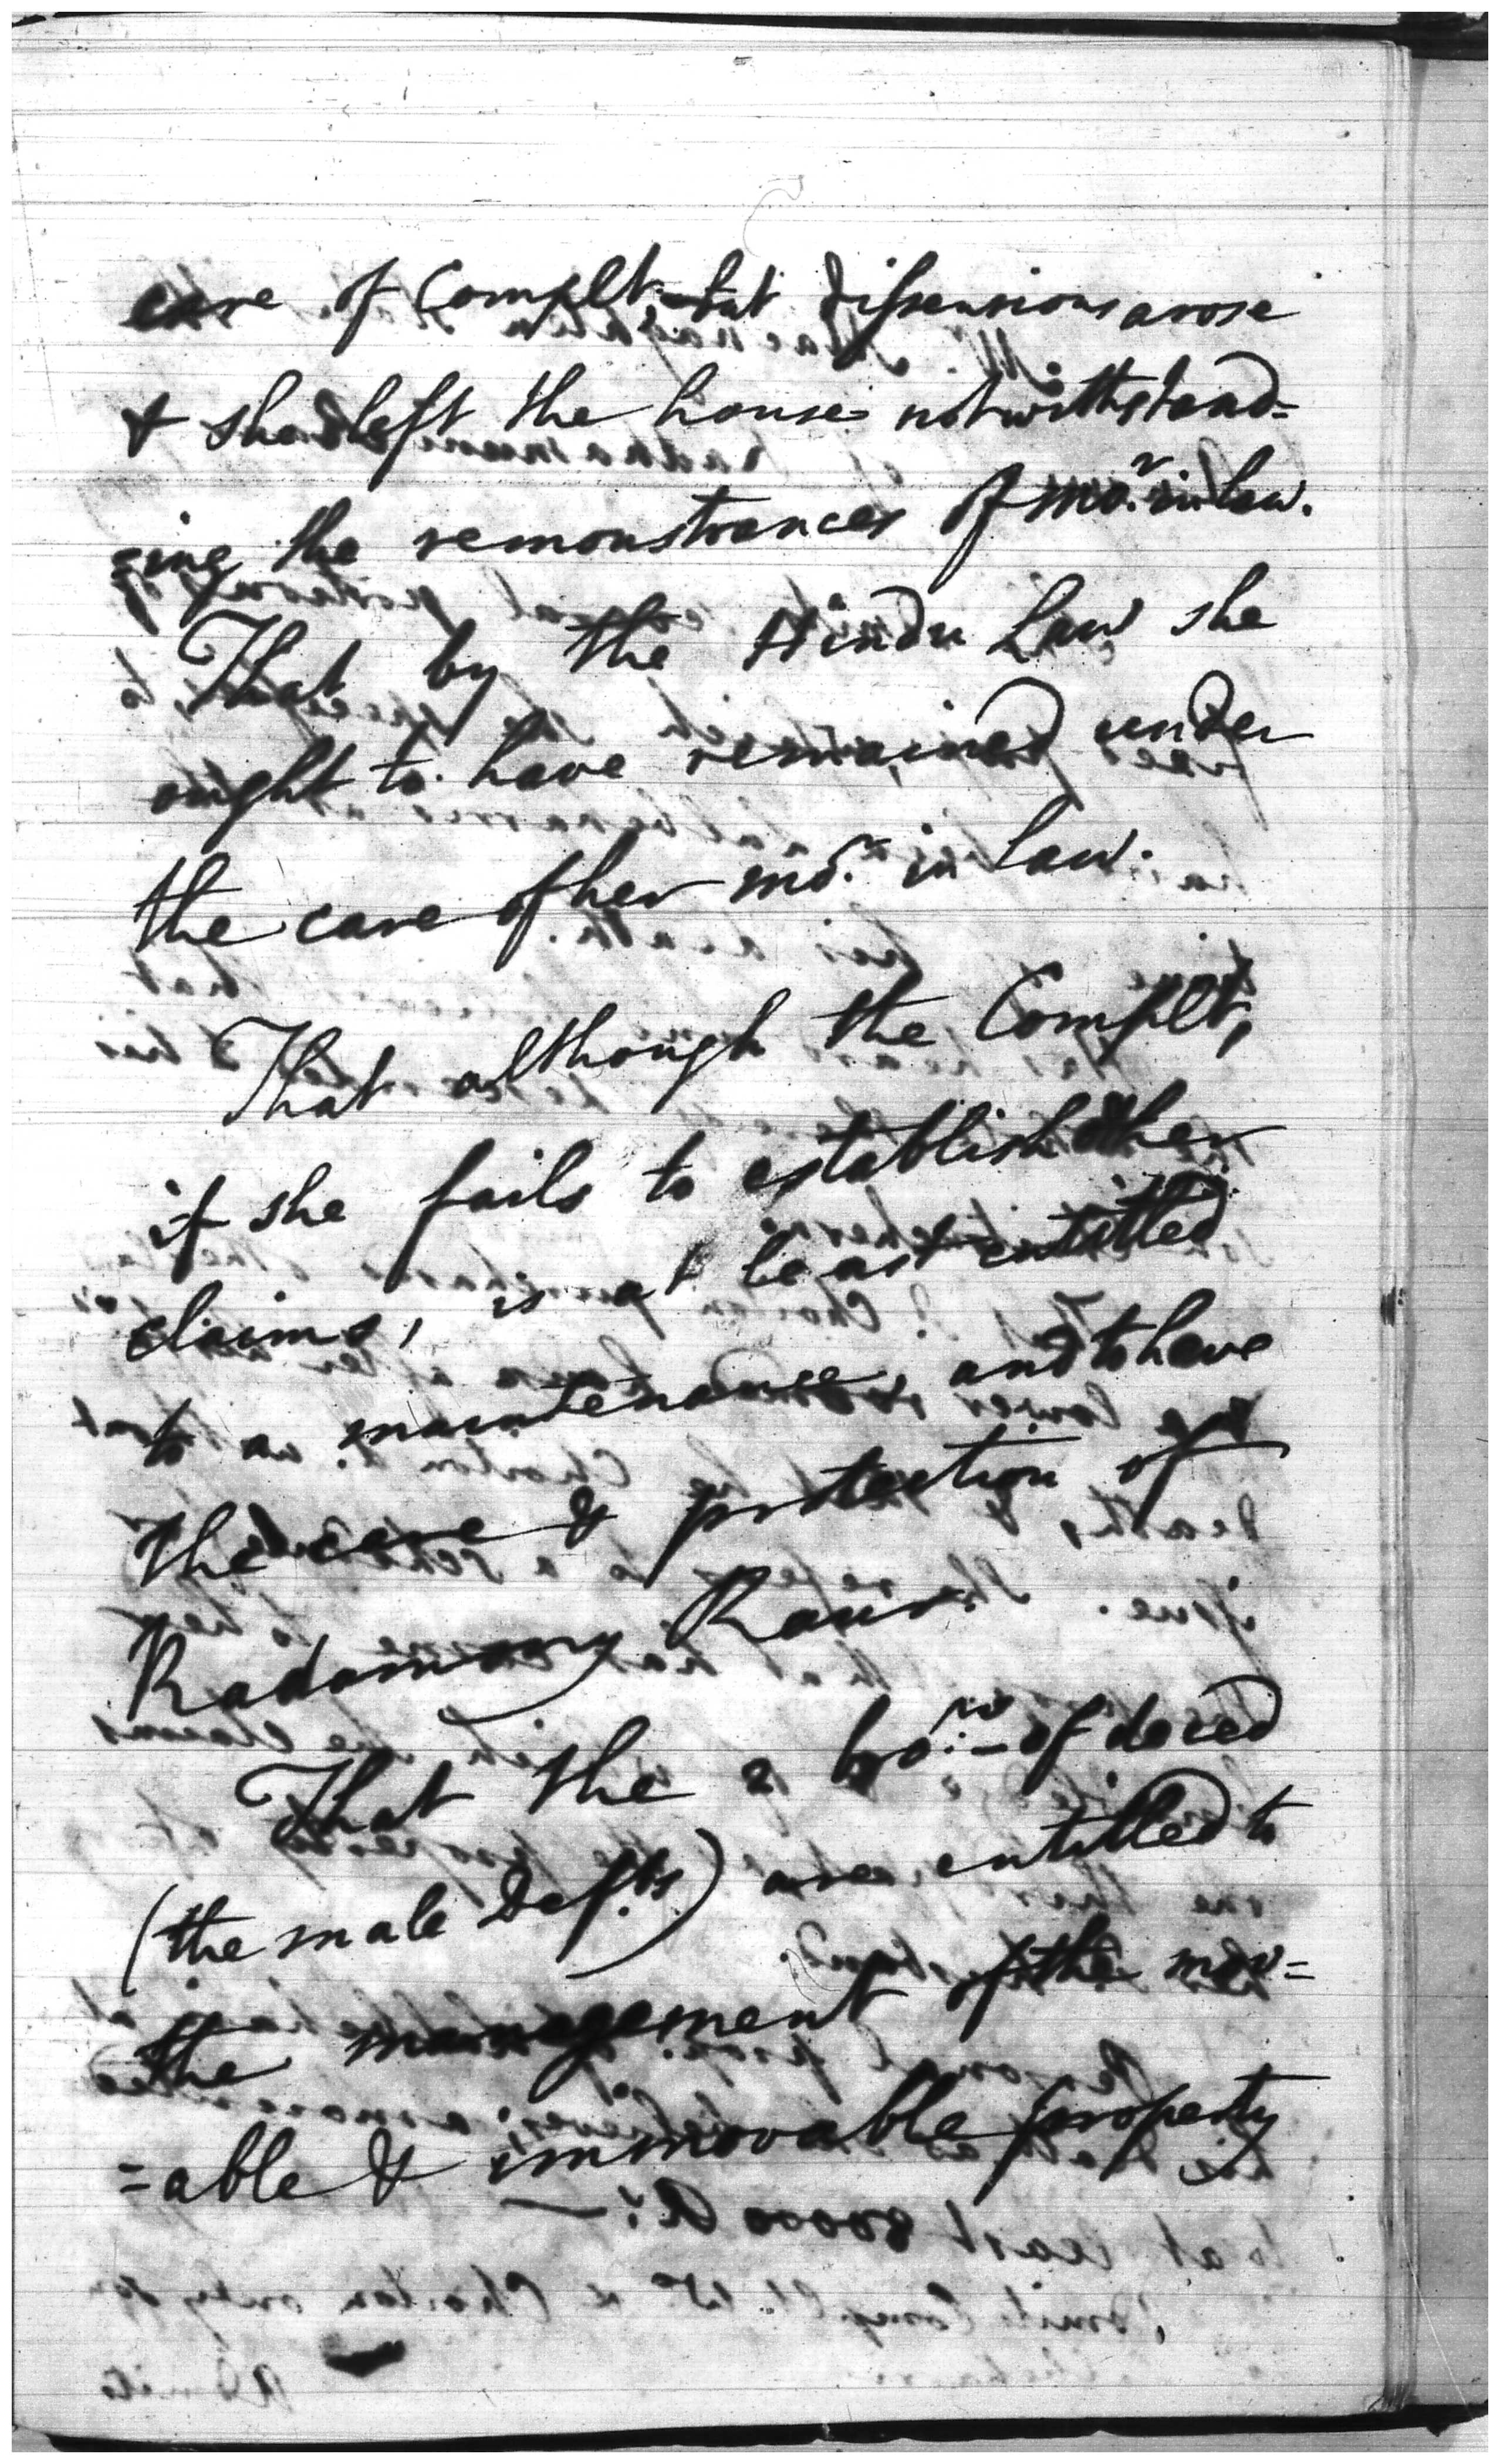 care of Complt, but dissensions arose
& she left the house notwithstand=
=ing the remonstrances of mo.r in law.
That by the Hindu Law she
ought to have remained under
the care of her mo.r in law.
That although the Complt,
if she fails to establish other
claims, is at least entitled
to a maintenance, and to have
the care & protection of
Radamony Raur.
That the 2 bro:rs of deced
(the male Defts) are entitled to
the management of the mov=
=able & immovable property